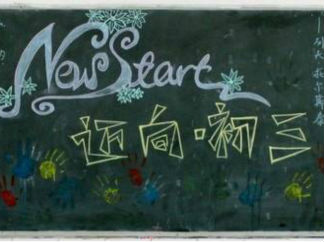 New Start
迈向·初三